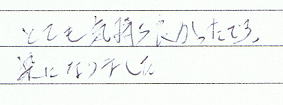 とても気持ち良かったです。
楽になりました